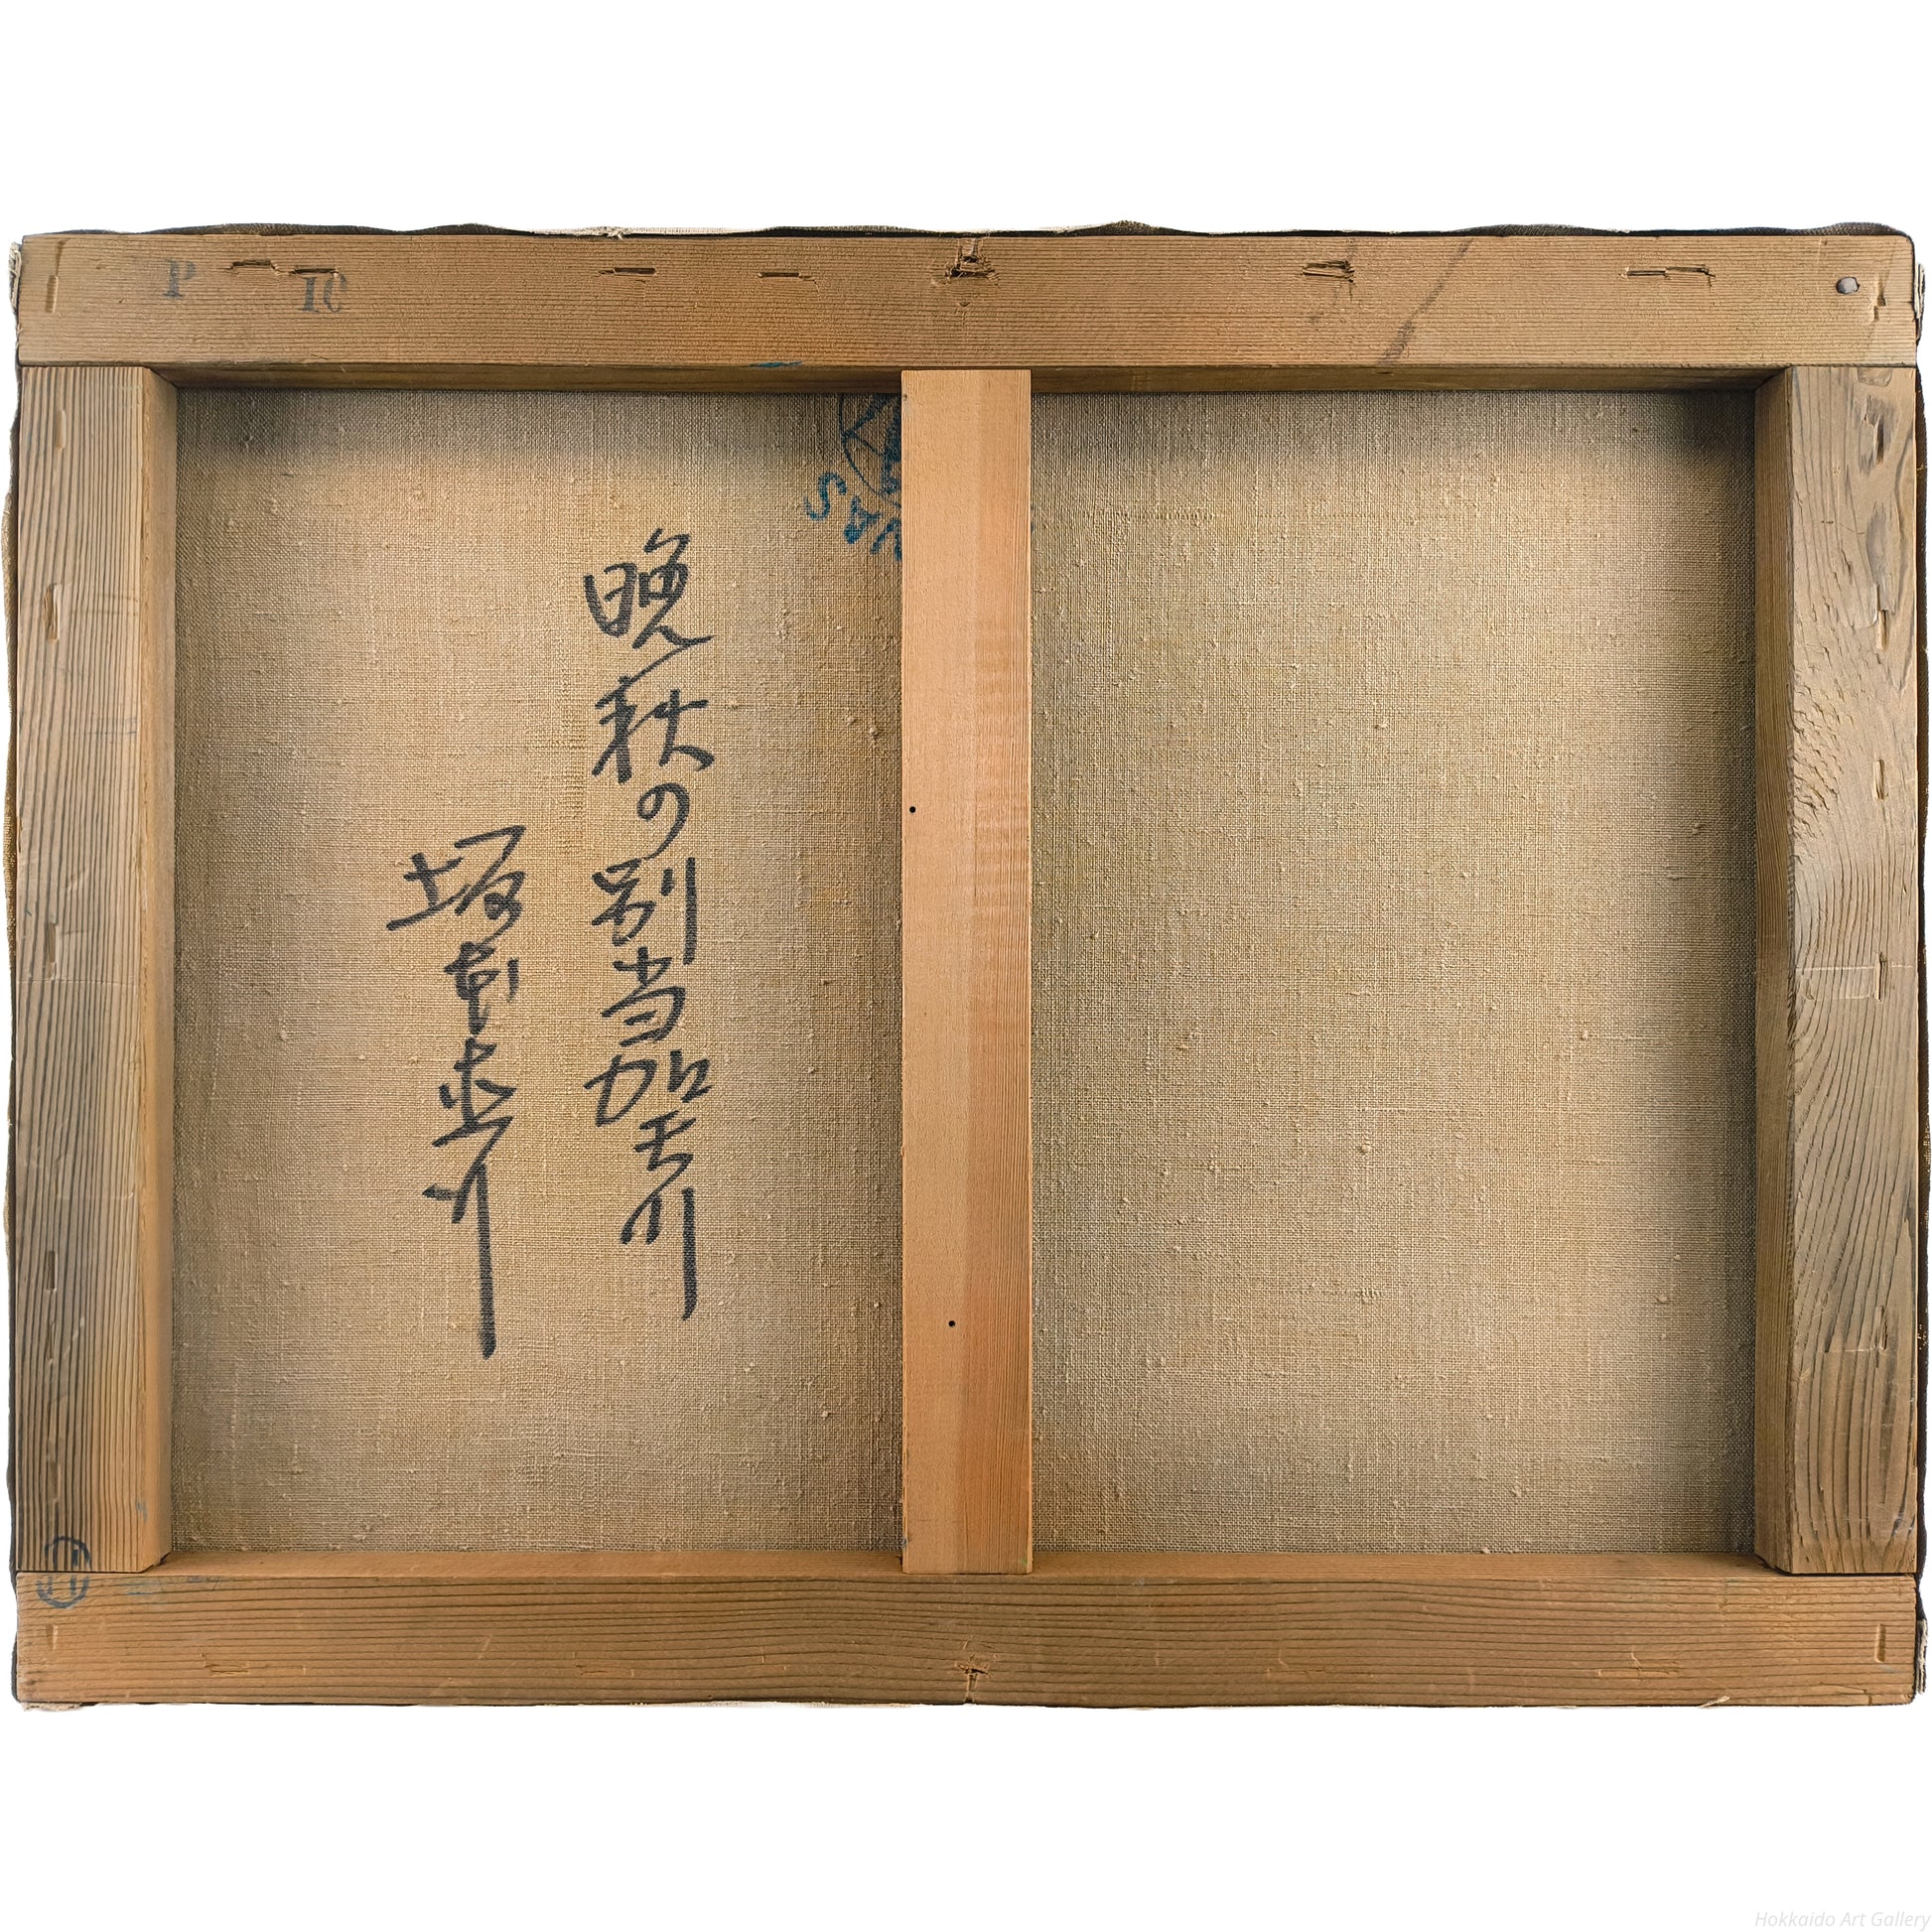 P 10
晩秋の別当加モ川
坂本直行
Hokkaido Art Gallery